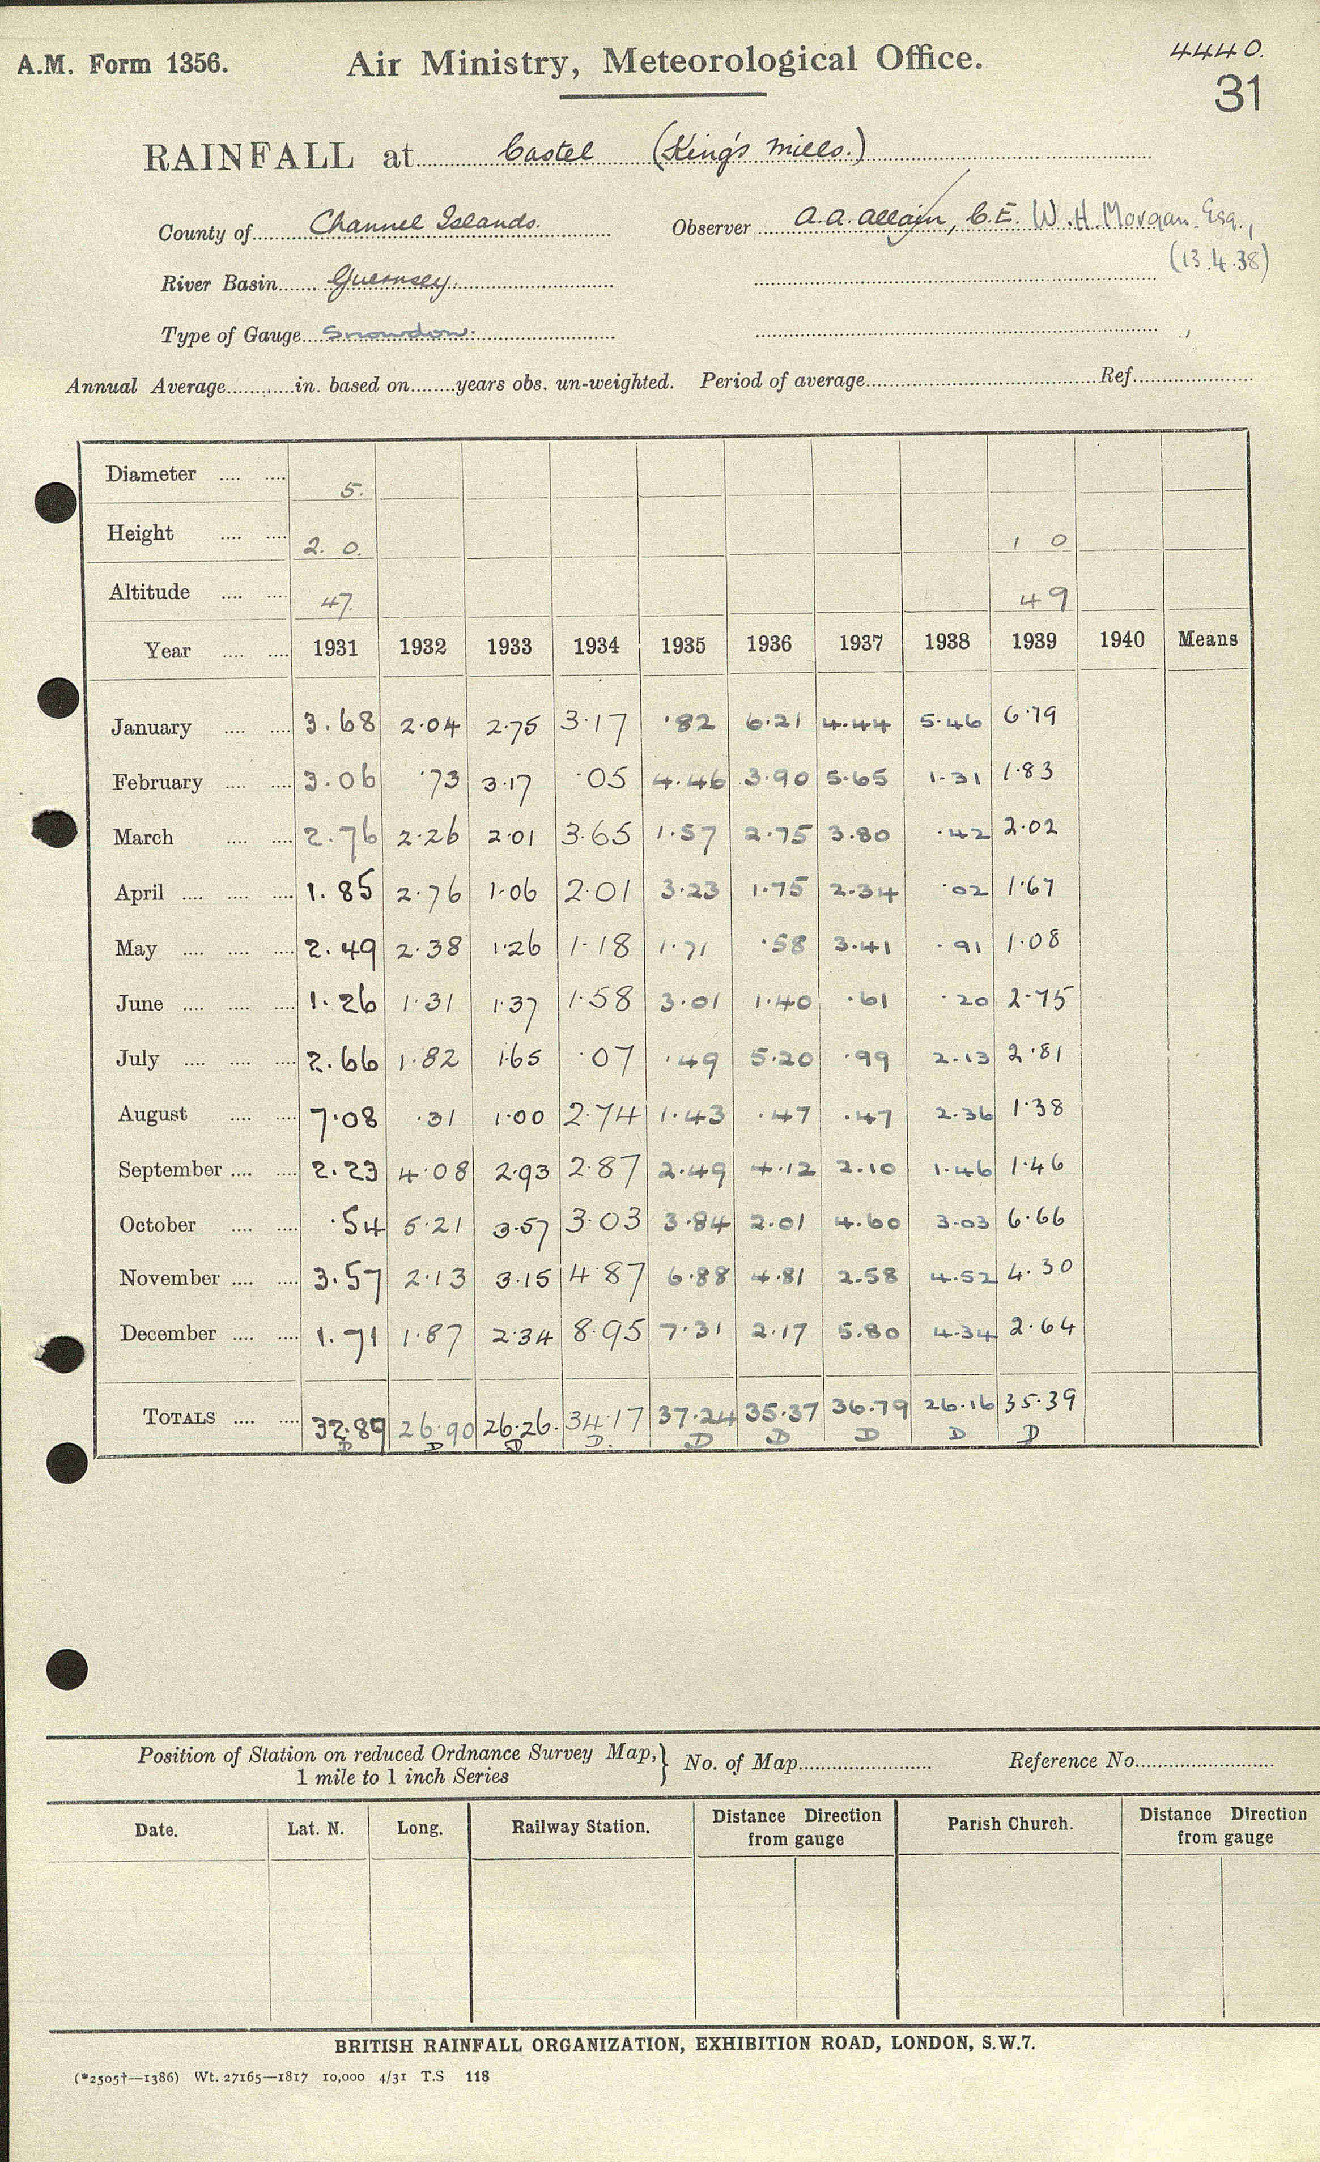 4440.
A.M. Form 1356. Air Ministry, Meteorological Office.
31
RAINFALL at Castel (King's Mills.)
County of Channel Islands. Observer A.A. Allain, C.E. W.H. Morgan Esq.,
(13.4.38)
River Basin Guernsey.
Type of Gauge Snowdon.
Annual Average in. based on years obs. un-weighted. Period of average Ref.
Diameter 5.
Height 2. 0. 1 0
Altitude 47. 49
Year 1931 1932 1933 1934 1935 1936 1937 1938 1939 1940 Means
January 3.68 2.04 2.75 3.17 .82 6.21 4.44 5.46 6.79
February 3.06 .73 3.17 .05 4.46 3.90 5.65 1.31 1.83
March 2.76 2.26 2.01 3.65 1.57 2.75 3.80 .42 2.02
April 1.85 2.76 1.06 2.01 3.23 1.75 2.34 .02 1.67
May 2.49 2.38 1.26 1.18 1.71 .58 3.41 .91 1.08
June 1.26 1.31 1.37 1.58 3.01 1.40 .61 .20 2.75
July 2.66 1.82 1.65 .07 .49 5.20 .99 2.13 2.81
August 7.08 .31 1.00 2.74 1.43 .47 .47 2.36 1.38
September 2.23 4.08 2.93 2.87 2.49 4.12 2.10 1.46 1.46
October .54 5.21 3.57 3.03 3.84 2.01 4.60 3.03 6.66
November 3.57 2.13 3.15 4.87 6.88 4.81 2.58 4.52 4.30
December 1.71 1.87 2.34 8.95 7.31 2.17 5.80 4.34 2.64
TOTALS 32.89 26.90 26.26. 34.17 37.24 35.37 36.79 26.16 35.39
D D D D D D D D D
Position of Station on reduced Ordnance Survey Map,} No. of Map Reference No.
1 mile to 1 inch Series
Date. Lat. N. Long. Railway Station. Distance Direction from gauge Parish Church. Distance Direction from gauge
BRITISH RAINFALL ORGANIZATION, EXHIBITION ROAD, LONDON, S.W.7.
(*2505†—1386) Wt. 27165—1817 10,000 4/31 T.S 118